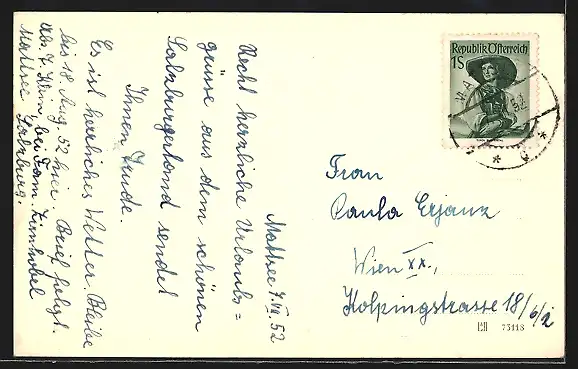 Mattsee 7. VII. 52
Recht herzliche Urlaubs=
grüsse aus dem schönen
Salzburgerland sendet
Ihnen Trude.
Es ist herrliches Wetter. Bleibe
bis 18. Aug. 52 hier. Brief folgt.
bei Fam.
Mattsee, Salzburg.
Republik Österreich
1S
Frau
Paula Erjanz
Wien XX.,
Kolpingstrasse 18/6/2
73118